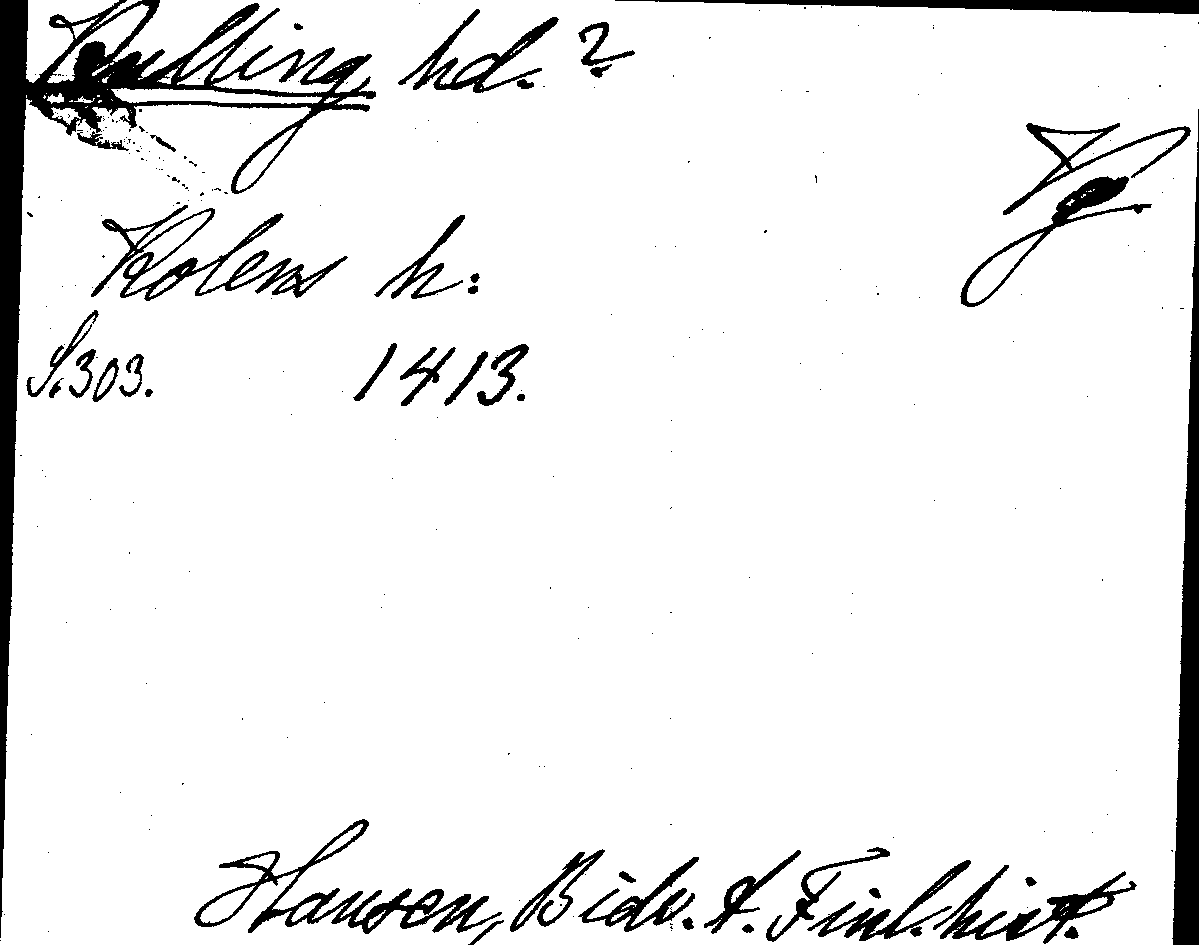 Kulling hd. ?
Vg.
Kolens h:
S. 303. 1413.
Hausen, Bidr. t. Finl. hist.